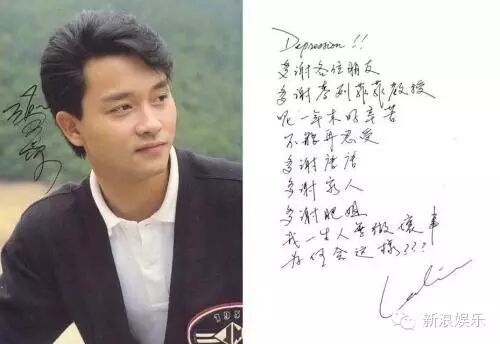 張國榮
Depression!!
多謝各位朋友
多謝 列菲菲教授
呢一年來 辛苦
不能再忍受
多謝唐唐
多謝家人
多謝肥姐
我一生人無做壞事
為何會這樣???
Leslie
195
新浪娱乐